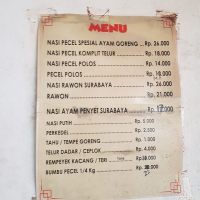 MENU
NASI PECEL SPESIAL AYAM GORENG Rp. 26.000
NASI PECEL KOMPLIT TELUR Rp. 18.000
NASI PECEL POLOS Rp. 14.000
PECEL POLOS Rp. 10.000
NASI RAWON SURABAYA Rp. 26.000
RAWON Rp. 21.000
NASI AYAM PENYET SURABAYA Rp.
NASI PUTIH Rp. 5.000
PERKEDEL Rp. 2.500
TAHU / TEMPE GORENG Rp. 1.000
TELUR DADAR / CEPLOK Rp. 4.000
REMPEYEK KACANG / TERI Rp.
BUMBU PECEL 1/4 Kg Rp.